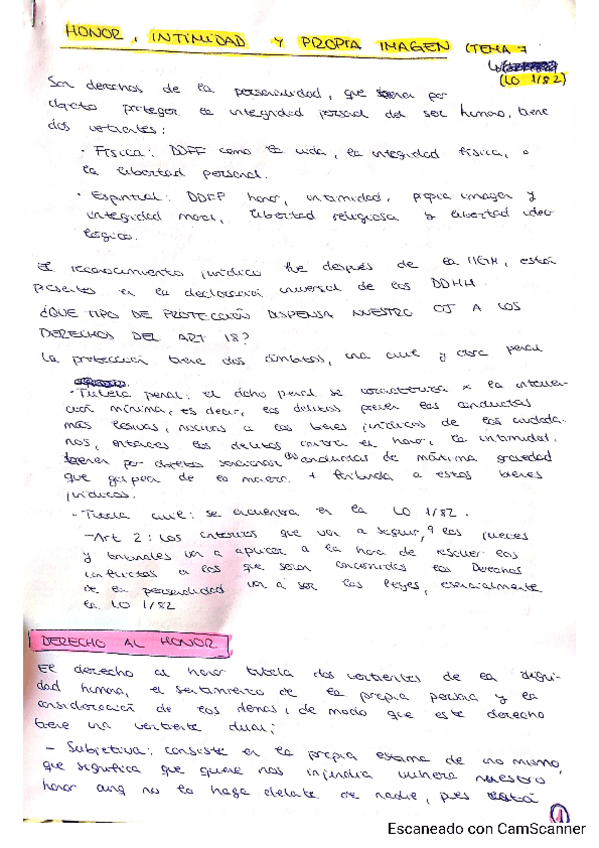 HONOR, INTIMIDAD Y PROPIA IMAGEN (TEMA 7
(LO 1/82)
Son derechos de la personalidad, que tienen por
objeto proteger la integridad personal del ser humano, tiene
dos vertientes:
· Física: DDFF como la vida, la integridad física, o
la libertad personal.
· Espiritual: DDFF honor, intimidad, propia imagen y
integridad moral, libertad religiosa y libertad ideo
lógica.
El reconocimiento jurídico fue después de la IIGM, están
presentes en la declaración universal de los DDHH.
¿QUE TIPO DE PROTECCIÓN DISPENSA NUESTRO OJ A LOS
DERECHOS DEL ART 18?
La protección tiene dos ámbitos, una civil y otra penal
· Tutela penal: el dcho penal se caracteriza x la interven-
ción mínima, es decir, los delitos prevén las conductas
más lesivas, nocivas a los bienes jurídicos de los ciudada-
nos, entonces los delitos contra el honor, la intimidad,
tienen por objetos sancionar las conductas de máxima gravedad
que golpean de la manera + a estos bienes
jurídicos.
- Tutela civil: se encuentra en la LO 1/82.
- Art 2: Los criterios que van a seguir, q los jueces
y tribunales van a aplicar a la hora de resolver los
conflictos a los que sean los Derechos
de la personalidad van a ser las leyes, especialmente
la LO 1/82
DERECHO AL HONOR
El derecho al honor tutela dos vertientes de la digni-
dad humana, el sentimiento de la propia persona y la
consideración de los demás, de modo que este derecho
tiene una vertiente dual;
- Subjetiva: consiste en la propia estima de uno mismo,
que significa que quien nos injuria vulnera nuestro
honor aunq no lo haga delante de nadie, pues está
1
Escaneado con CamScanner